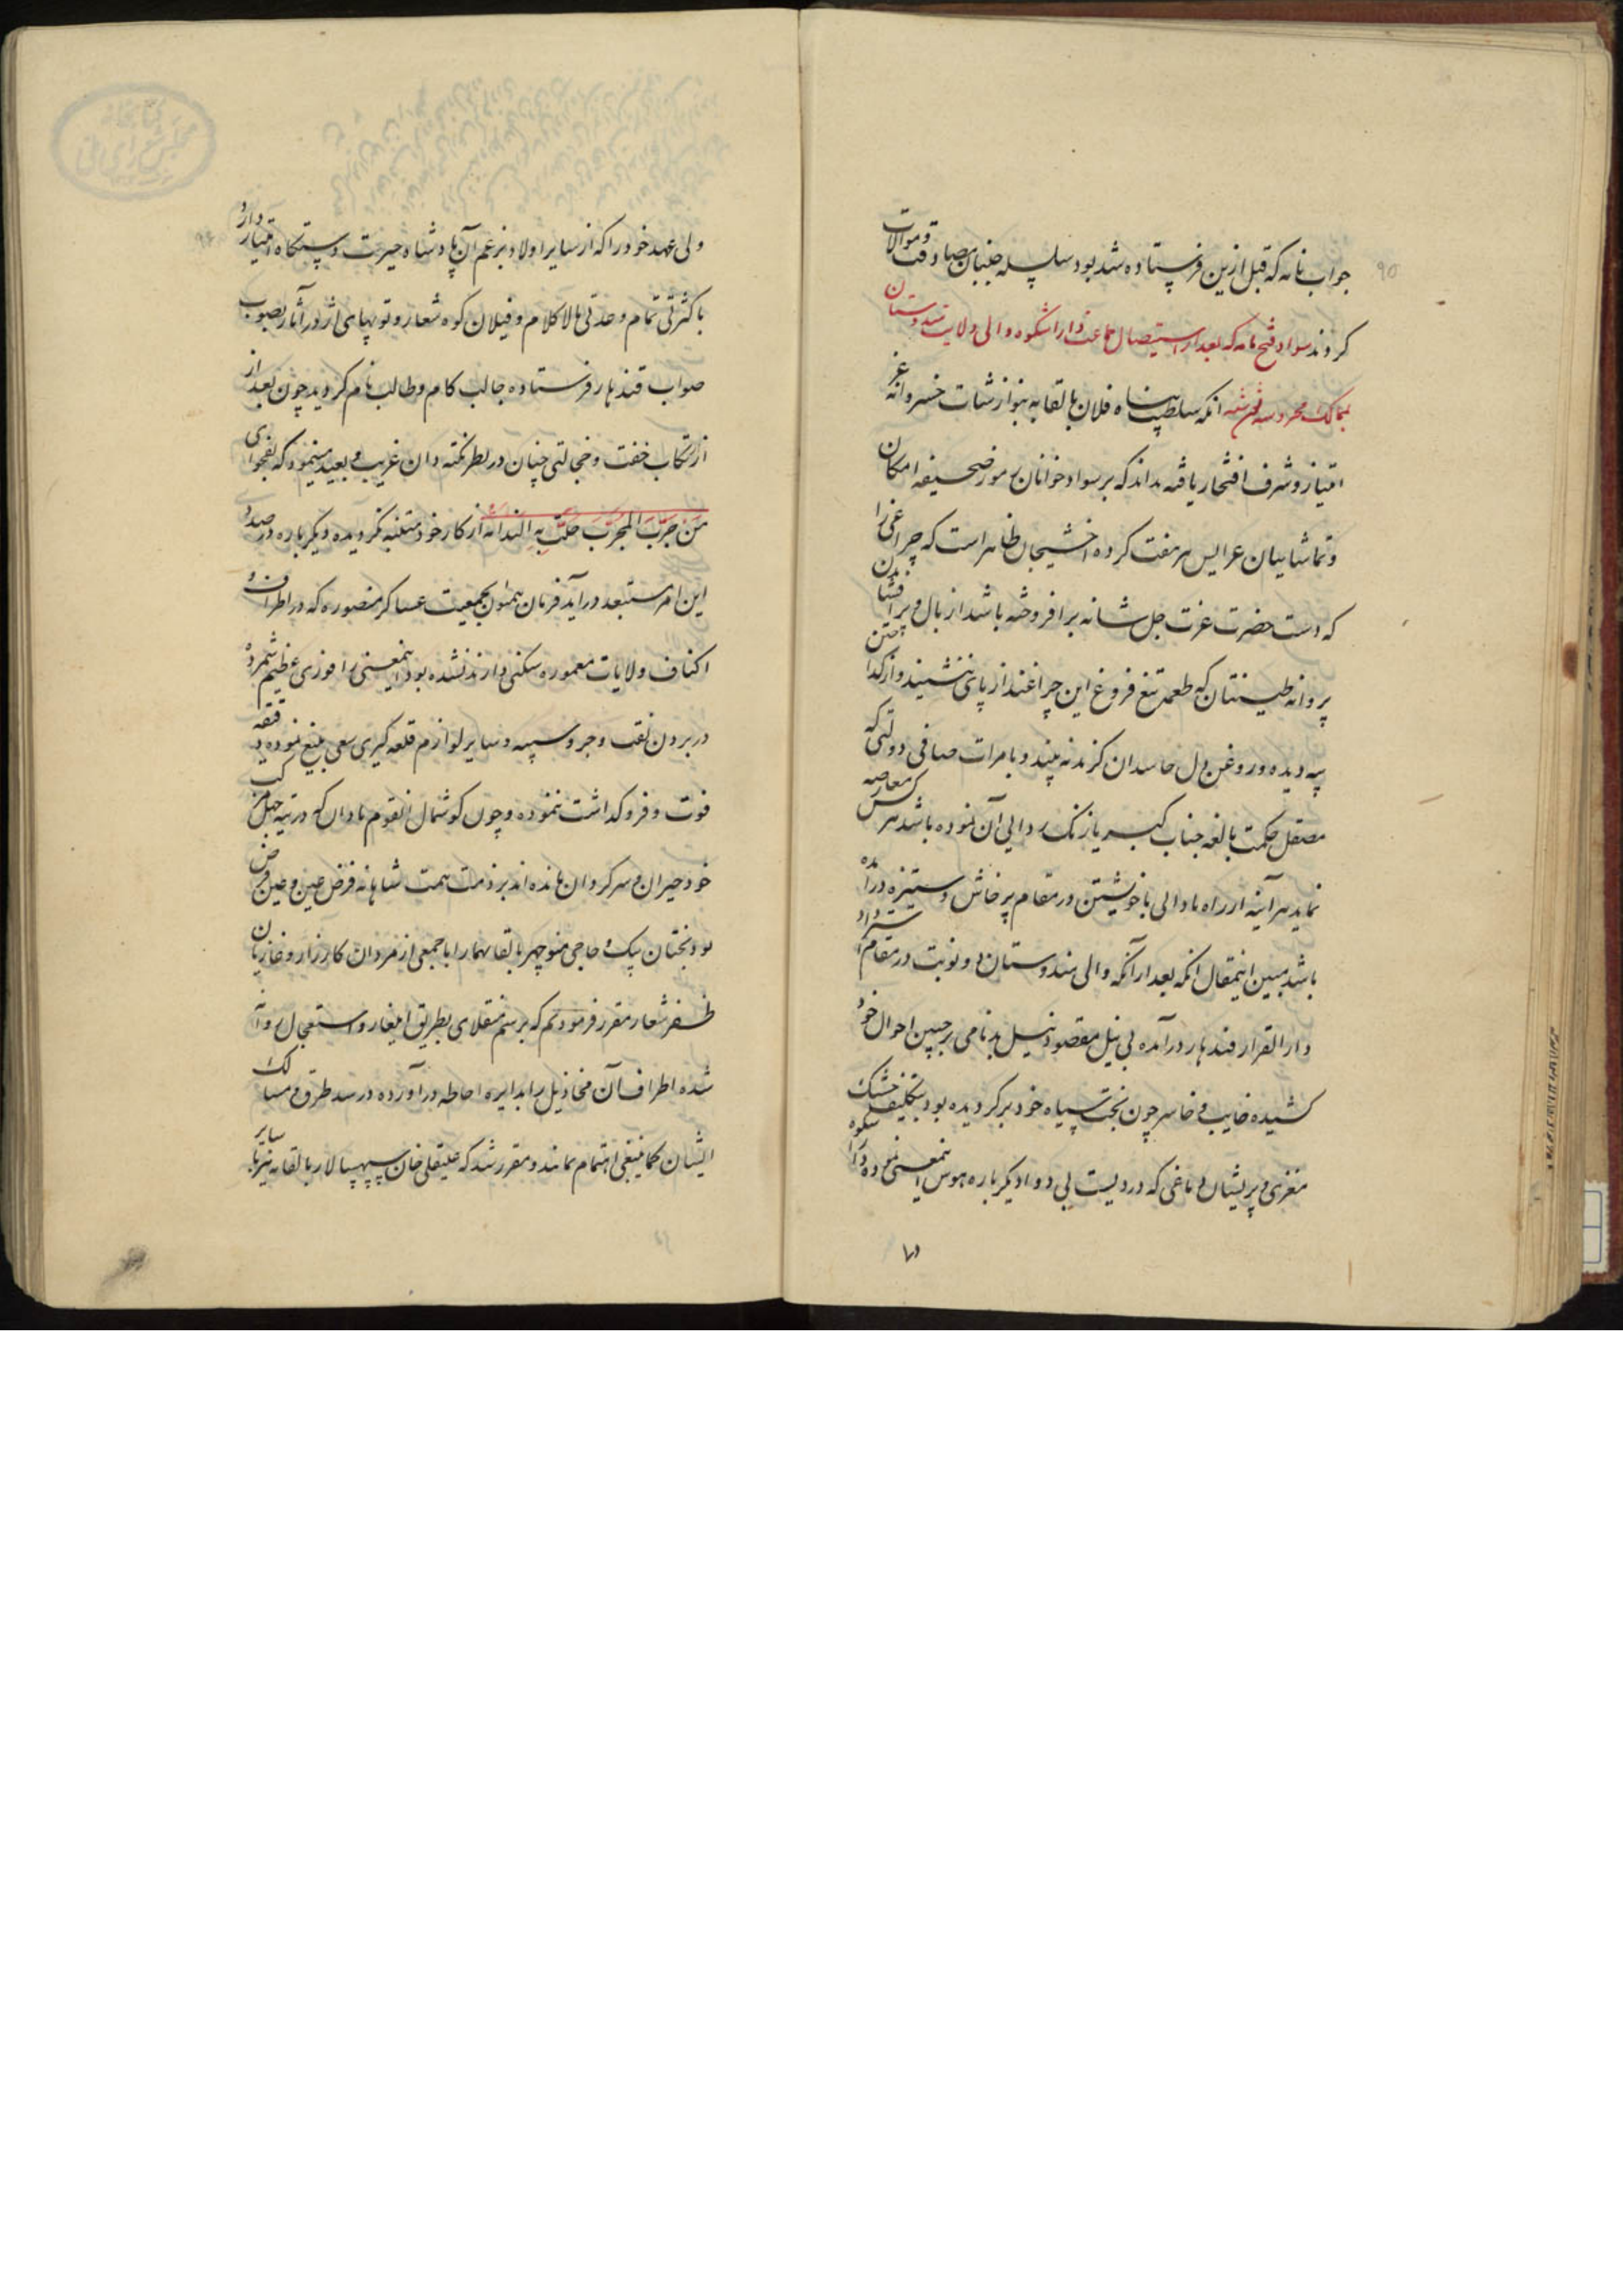 ۹۵
جواب نامه که قبل ازین فرستاده شد بود سلسله جنبان مصادقت و موالات
کردند سواد فتح نامه که بعد از استیصال جماعت داراشکوه والی ولایت هندوستان
بممالک محروسه قلمی شد آنکه سلطنت پناه فلان بالقابه بنوازشات خسروانه عز
امتیاز و شرف افتخار یافته بداند که بر سواد خوانان رموز صحیفه امکان
و تماشاییان عرایس هر هفت کرده اخشیجان ظاهر است که چراغی را
که دست حضرت عزت جل شانه برافروخته باشد از بال و پر افشاندن
پروانه طینتان که طعمه تیغ فروغ این چراغند از پای ننشیند و از گداختن
پیه دیده و روغن دل حاسدان گزند نه بیند و با مرات صافی دولتی که
مصقل حکمت بالغه جناب کبریا زنگ ردایی آن نموده باشد هر کس معارضه
نماید هر آینه از راه نادانی با خویشتن در مقام پرخاش و ستیزه درآمده
باشد مبین اینمقال آنکه بعد از آنکه والی هندوستان دو نوبت در مقام استرداد
دارالقرار قندهار درآمده بی نیل مقصود نیل بدنامی بر جبین احوال خود
کشیده خایب و خاسر چون بخت سیاه خود برگردیده بود بتکلیف خشک
مغزی و پریشان دماغی که دردیست بی دوا دیگر باره هوس اینمعنی نموده داراشکوه
ولی عهد خود را که از سایر اولاد بزعم آن پادشاه حیرت دستگاه امتیاز دارد
با کثرتی تمام و عدتی مالاکلام و فیلان کوه شعار و توپهای اژدر آثار بصوب
صواب قندهار فرستاده جالب کام و طالب نام گردید چون بعد از
ارتکاب خفت و خجالتی چنان در نظر نکته دان غریب و بعید مینمود که بفحوای
من جرب المجرب حلت به الندامه از کار خود متنبه نگردیده دیگر باره در صدد
این امر مستبعد درآید فرمان همیون بجمعیت عساکر منصوره که در اطراف و
اکناف ولایات معموره سکنی دارند نشده بود اینمعنی را فوزی عظیم شمرده
در بردن نقب و جر و سیبه و سایر لوازم قلعه گیری سعی بلیغ نموده دقیقه
فوت و فروگذاشت ننموده و چون گوشمال آنقوم نادان که در تیه جهل مرکب
خود حیران و سرگردان مانده اند بر ذمت همت شاهانه فرض عین و عین فرض
بود نجتان بیک و حاجی منوچهر بالقابهما را با جمعی از مردان کارزار و غازیان
ظفر شعار مقرر فرمودیم که برسم منقلای بطریق ایلغار و استعجال روانه
شده اطراف آن مخاذیل را بدایره احاطه درآورده در سد طرق و مسالک
ایشان کما ینبغی اهتمام نمایند و مقرر شد که علیقلی خان سپهسالار بالقابه نیز با سایر